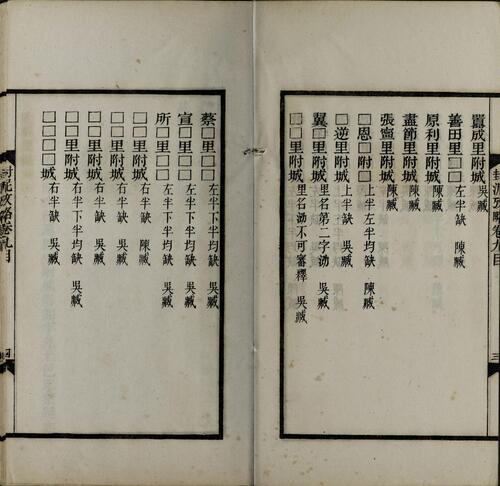 封泥攷略卷九目
三
成里附城 吳臧
善田里□□ 左半缺 陳臧
原利里附城 陳臧
盡節里附城 陳臧
張寍里附城 陳臧
□恩□附□ 上半左半均缺 陳臧
□逆里附城 上半缺 吳臧
翼□里附城 里名第二字泐 吳臧
□□里附城 里名泐不可審釋 吳臧
蔡□里□□ 左半下半均缺 吳臧
宣□里□□ 左半下半均缺 吳臧
所□里□□ 左半下半均缺 吳臧
□□里附城 右半缺 陳臧
□□里附城 右半缺 吳臧
□□里附城 右半下半均缺 吳臧
□□里附城 右半缺 吳臧
□□□□城 右半缺 吳臧
封泥攷略卷九目
四